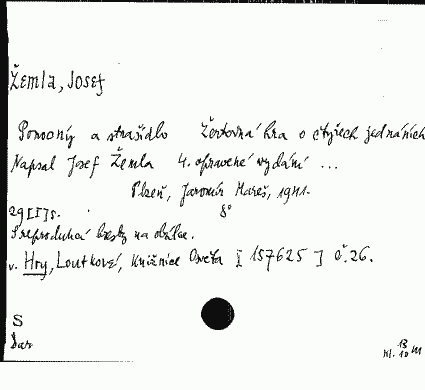 Žemla, Josef
Ponocný a strašidlo Žertovná hra o čtyřech jednáních
Napsal Josef Žemla 4. opravené vydání ...
Plzeň, Jaromír Mareš, 1941.
29 [I] s. 8°
S reprodukcí kresby na obálce.
v. Hry, Loutkové, Knižnice Osvěta [ 157625 ] č. 26.
S
dar